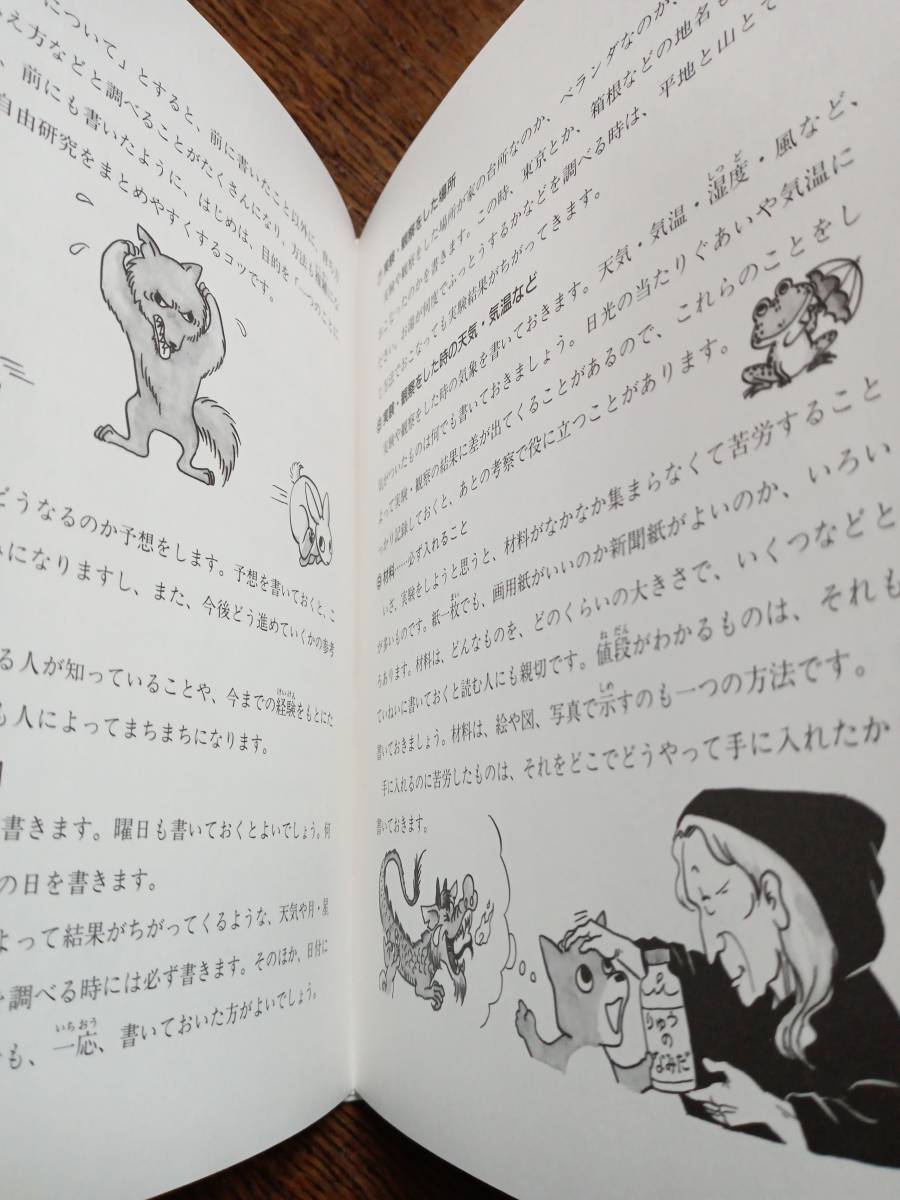 について」とすると、前に書いたこと以外に、育ち方
え方などと調べることがたくさんになり、方法も複雑になる
、前にも書いたように、はじめは、目的を「一つのことに
自由研究をまとめやすくするコツです。
どうなるのか予想をします。予想を書いておくと、こ
になりますし、また、今後どう進めていくかの参考
る人が知っていることや、今までの経験をもとにた
けいけん
も人によってまちまちになります。
書きます。曜日も書いておくとよいでしょう。何
の日を書きます。
よって結果がちがってくるような、天気や月・星
を調べる時には必ず書きます。そのほか、日付に
いちおう
も、一応、書いておいた方がよいでしょう。
実験・観察をした場所
実験や観察をした場所が家の台所なのか、ベランダなのか、
おこなったのかを書きます。この時、東京とか、箱根などの地名も
ださい。お湯が何度でふっとうするかなどを調べる時は、平地と山とで
じ方法でおこなっても実験結果がちがってきます。
実験・観察をした時の天気・気温など
しつど
実験や観察をした時の気象を書いておきます。天気・気温・湿度・風など、
気がついたものは何でも書いておきましょう。日光の当たりぐあいや気温に
よって実験・観察の結果に差が出てくることがあるので、これらのことをし
っかり記録しておくと、あとの考察で役に立つことがあります。
材料……必ず入れること
いざ、実験をしようと思うと、材料がなかなか集まらなくて苦労すること
まい
が多いものです。紙一枚でも、画用紙がいいのか新聞紙がよいのか、いろい
ろあります。材料は、どんなものを、どのくらいの大きさで、いくつなどと
ねだん
ていねいに書いておくと読む人にも親切です。値段がわかるものは、それも
しめ
書いておきましょう。材料は、絵や図、写真で示すのも一つの方法です。
手に入れるのに苦労したものは、それをどこでどうやって手に入れたか
書いておきます。
りゅう
の
なみだ